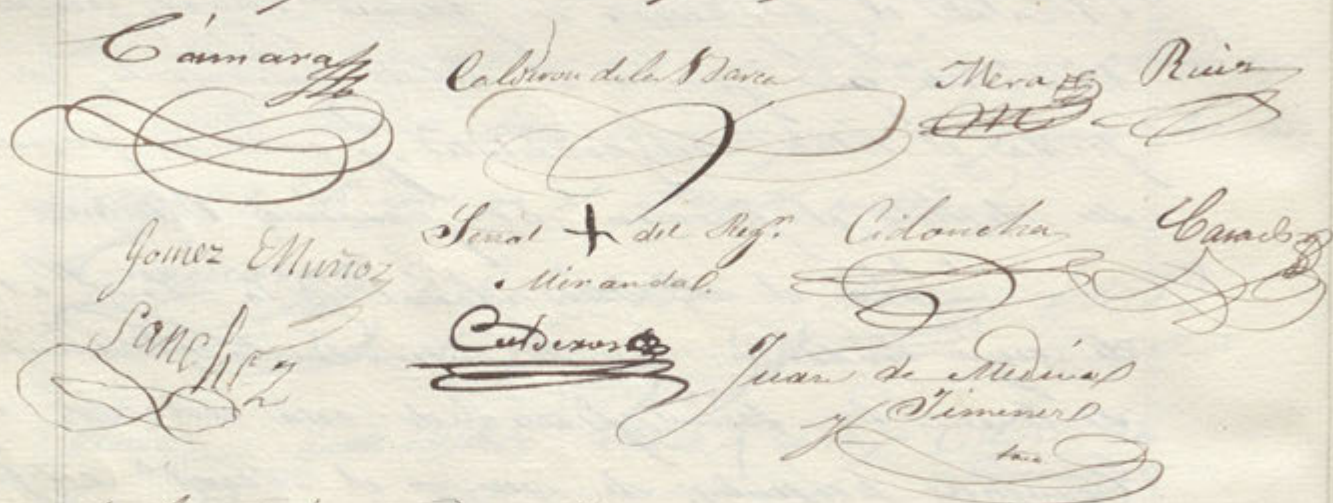 Cámara Calderon de la Barca Mera Ruiz
Gomez Muñoz Señal + del Regr. Cidoncha
Mirandal.
Sanchez Calderon
Juan de Medina
Jimenez